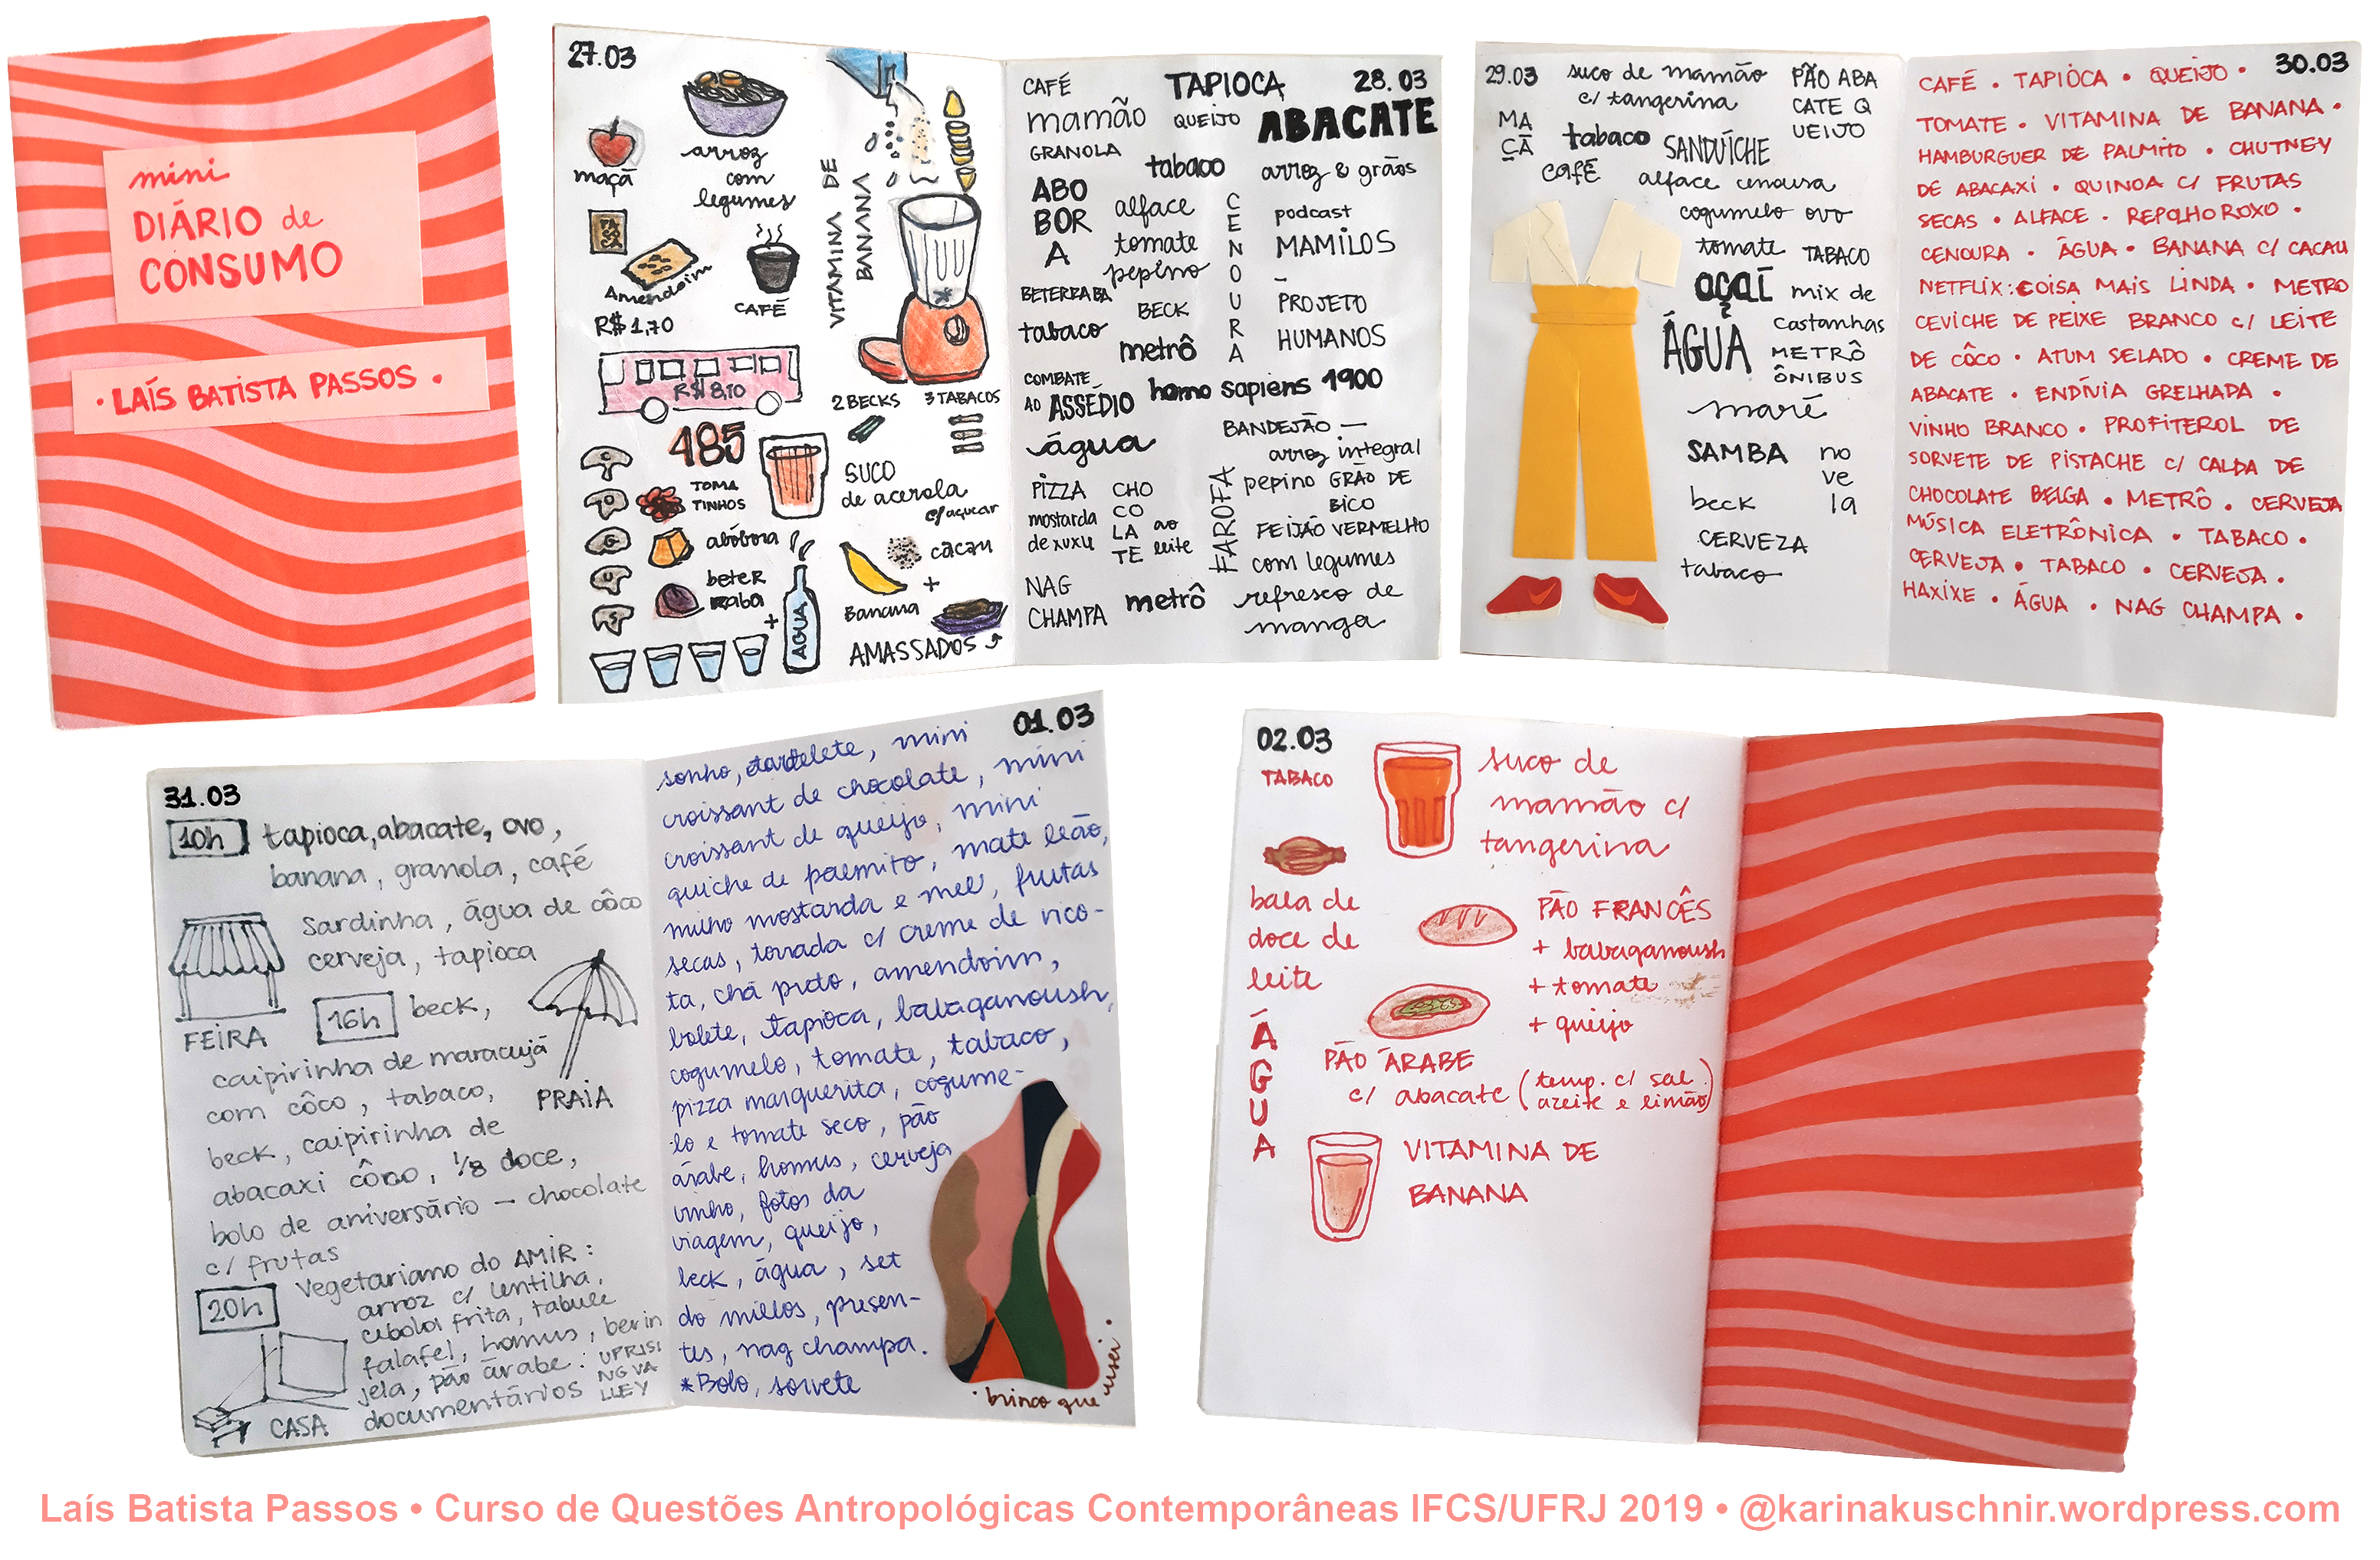 mini
DIÁRIO de
CONSUMO
• LAÍS BATISTA PASSOS •
27.03
maçã
arroz
com
legumes
VITAMINA DE
BANANA
PAÇOCA
Amendoim
R$ 1,70
CAFÉ
R$ 8,10
485
2 BECKS
3 TABACOS
TOMA
TINHOS
SUCO
de acerola
c/ açucar
abóbora
beter
raba
+
ÁGUA
cacau
+
Banana
AMASSADOS
28.03
CAFÉ
TAPIOCA
mamão
QUEIJO
ABACATE
GRANOLA
tabaco
arroz & grãos
ABO
BOR
A
alface
tomate
pepino
CENOURA
podcast
MAMILOS
–
PROJETO
HUMANOS
BETERRABA
BECK
tabaco
metrô
COMBATE
AO ASSÉDIO
homo sapiens 1900
água
BANDEJÃO —
arroz integral
pepino GRÃO DE
BICO
FEIJÃO VERMELHO
com legumes
refresco de
manga
FAROFA
PIZZA
mostarda
de xuxu
CHO
CO
LA ao
TE leite
NAG
CHAMPA
metrô
29.03
suco de mamão
c/ tangerina
PÃO ABA
CATE Q
UEIJO
MA
ÇÃ
tabaco
CAFÉ
SANDUÍCHE
alface cenoura
cogumelo ovo
tomate
TABACO
açaí
mix de
castanhas
ÁGUA
METRÔ
ÔNIBUS
maré
SAMBA
no
ve
la
beck
CERVEZA
tabaco
30.03
CAFÉ • TAPIÓCA • QUEIJO •
TOMATE • VITAMINA DE BANANA •
HAMBURGUER DE PALMITO • CHUTNEY
DE ABACAXI • QUINOA C/ FRUTAS
SECAS • ALFACE • REPOLHO ROXO •
CENOURA • ÁGUA • BANANA C/ CACAU
NETFLIX: COISA MAIS LINDA • METRO
CEVICHE DE PEIXE BRANCO C/ LEITE
DE CÔCO • ATUM SELADO • CREME DE
ABACATE • ENDÍVIA GRELHADA •
VINHO BRANCO • PROFITEROL DE
SORVETE DE PISTACHE C/ CALDA DE
CHOCOLATE BELGA • METRÔ • CERVEJA
MÚSICA ELETRÔNICA • TABACO •
CERVEJA • TABACO • CERVEJA •
HAXIXE • ÁGUA • NAG CHAMPA •
31.03
10h tapioca, abacate, ovo,
banana, granola, café
Sardinha, água de côco
cerveja, tapioca
FEIRA
16h beck,
caipirinha de maracujá
com côco, tabaco,
PRAIA
beck, caipirinha de
abacaxi côco, 1/8 doce,
bolo de aniversário – chocolate
c/ frutas
20h
Vegetariano do AMIR:
arroz c/ lentilha,
cebola frita, tabule
falafel, homus, berin
jela, pão árabe:
documentários
UPRISI
NG VA
LLEY
CASA
01.03
sonho, tartelete, mini
croissant de chocolate, mini
croissant de queijo, mini
quiche de palmito, mate leão,
milho mostarda e mel, frutas
secas, torrada c/ creme de rico-
ta, chá preto, amendoim,
bolete, tapioca, babaganoush,
cogumelo, tomate, tabaco,
pizza marguerita, cogume-
lo e tomate seco, pão
árabe, homus, cerveja
vinho, fotos da
viagem, queijo,
beck, água, set
do millos, presen-
tes, nag champa.
*Bolo, sorvete
• brinco que usei •
02.03
TABACO
suco de
mamão c/
tangerina
bala de
doce de
leite
ÁGUA
PÃO FRANCÊS
+ babaganoush
+ tomate
+ queijo
PÃO ÁRABE
c/ abacate (temp. c/ sal
azeite e limão)
VITAMINA DE
BANANA
Laís Batista Passos • Curso de Questões Antropológicas Contemporâneas IFCS/UFRJ 2019 • @karinakuschnir.wordpress.com